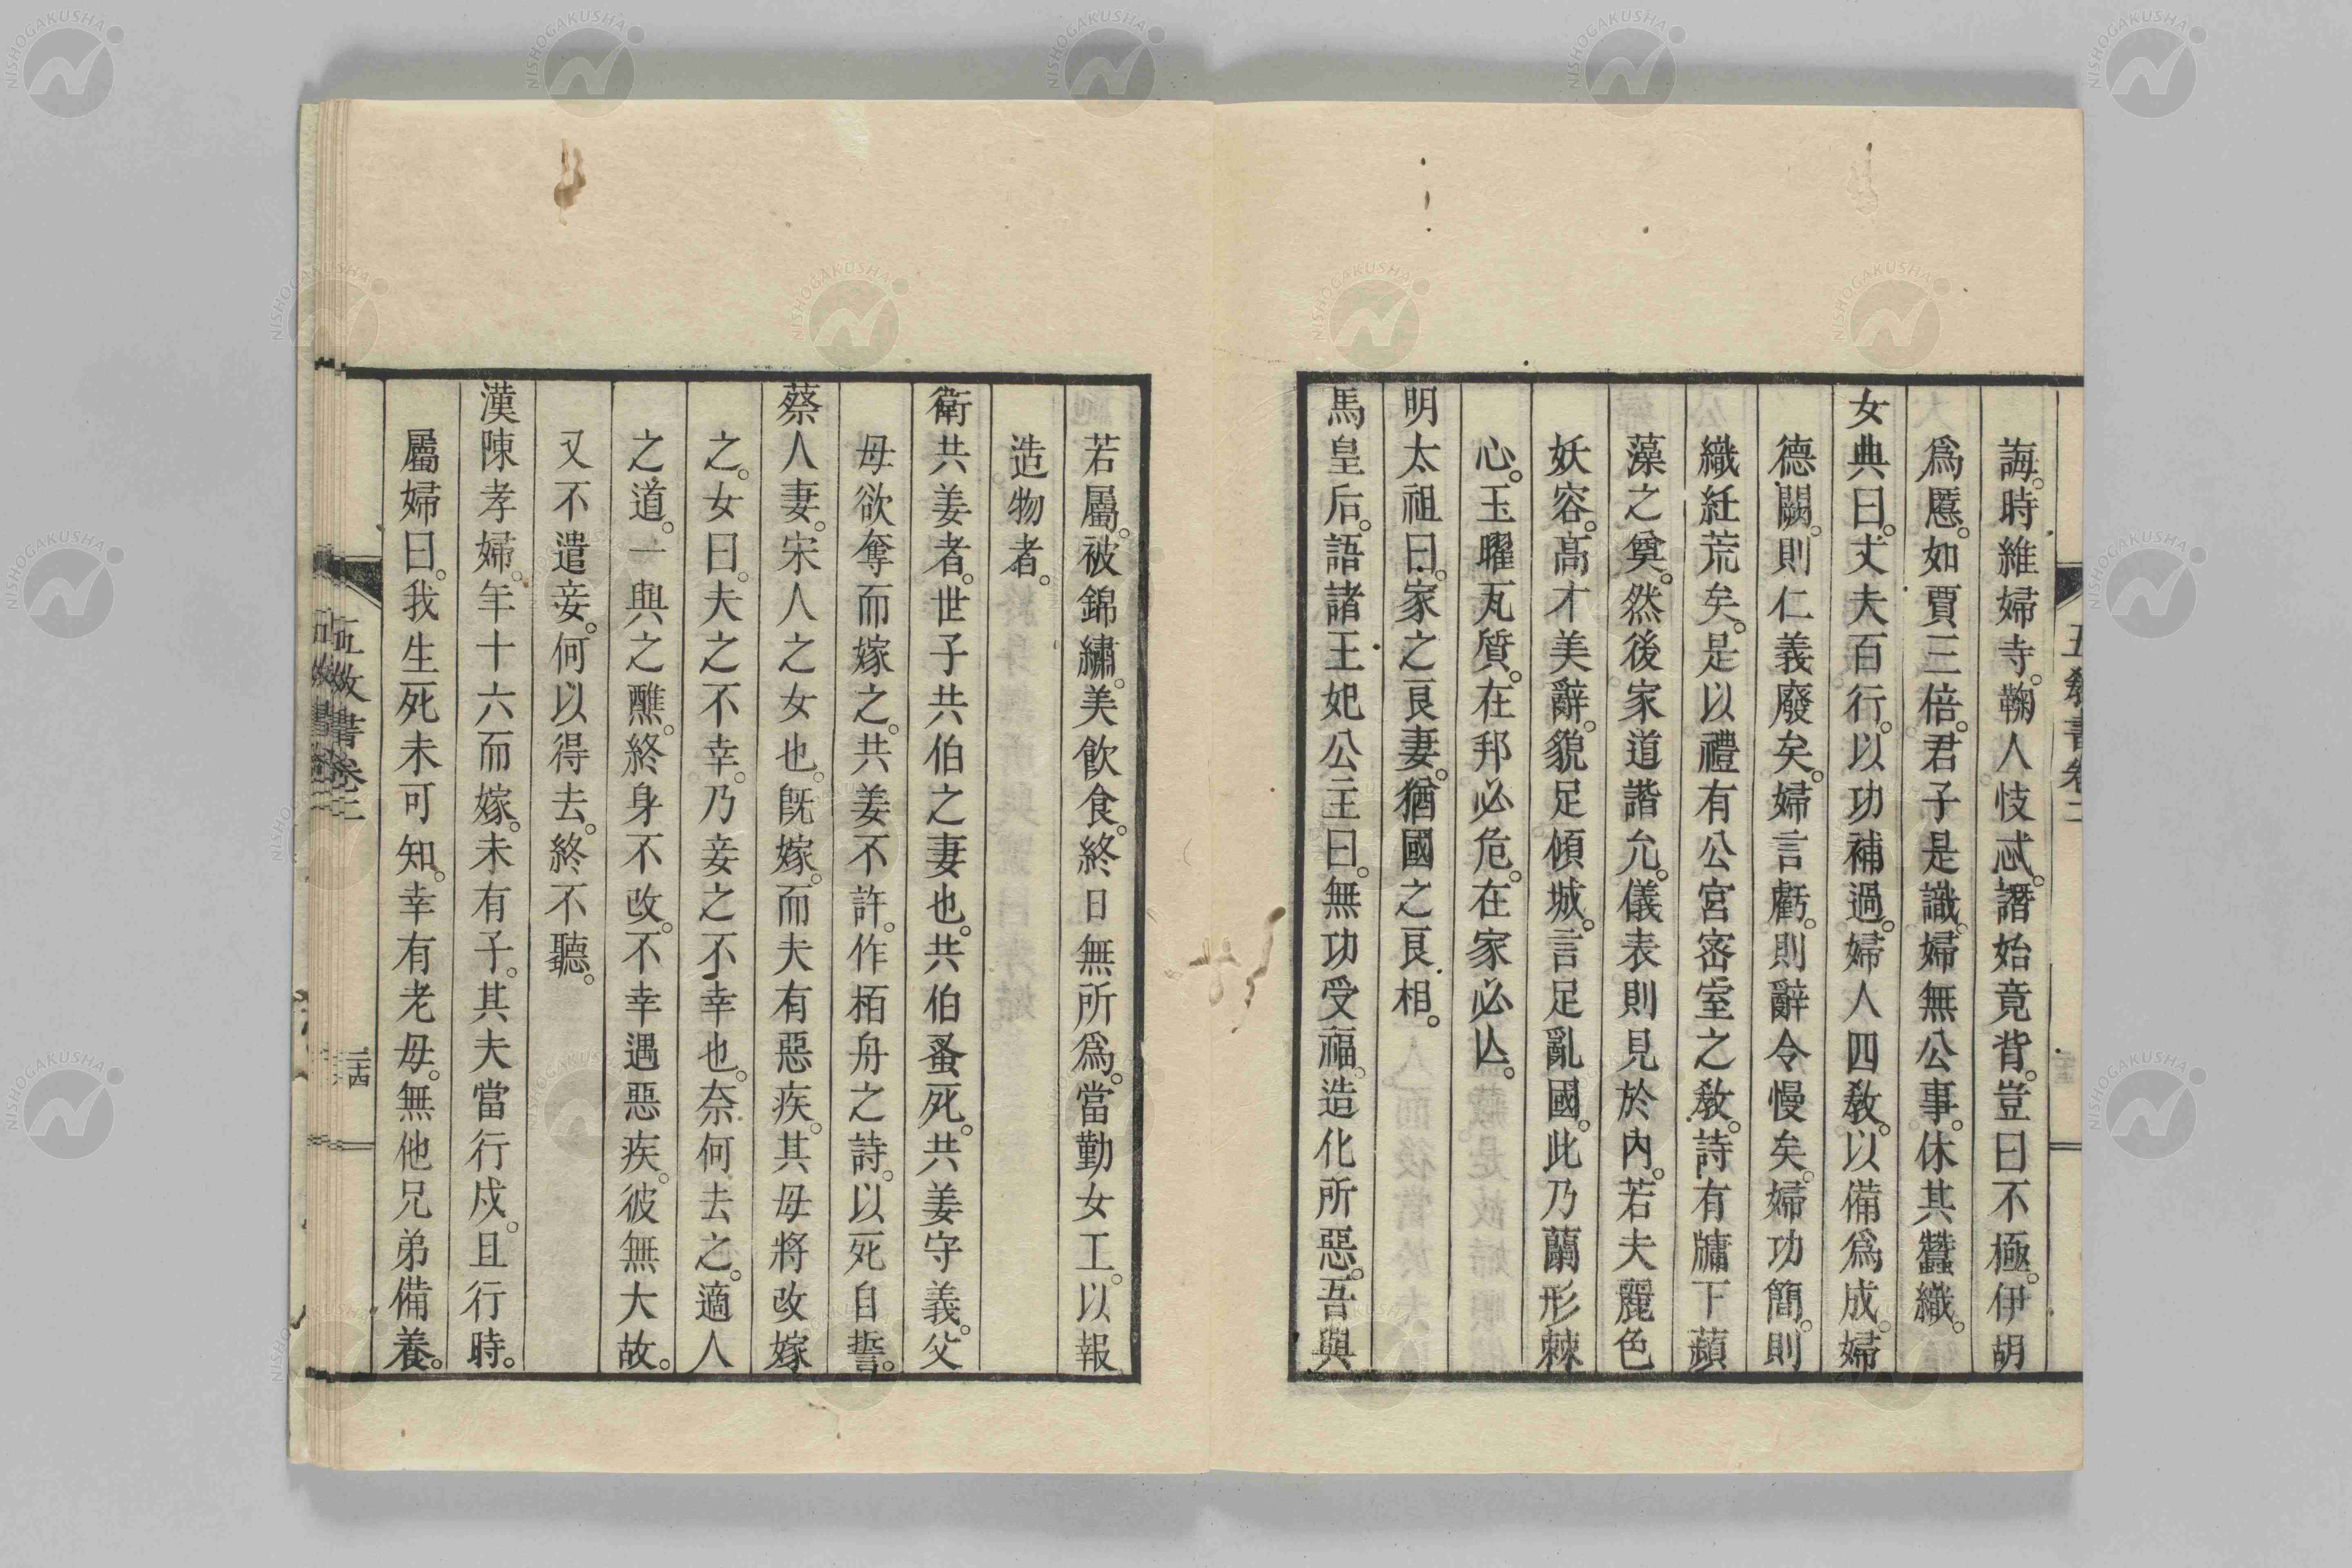 誨。時維婦寺。鞠人忮忒。譖始竟背。豈曰不極。伊胡
爲慝。如賈三倍。君子是識。婦無公事。休其蠶織。
女典曰。丈夫百行。以功補過。婦人四敎。以備爲成。婦
德闕。則仁義廢矣。婦言虧。則辭令慢矣。婦功簡。則
織紝荒矣。是以禮有公宮宻室之敎。詩有牗下蘋
藻之奠。然後家道諧允。儀表則見於內。若夫麗色
妖容。高才美辭。貌足傾城。言足亂國。此乃蘭形棘
心。玉曜瓦質。在邦必危。在家必亾。
明太祖曰。家之良妻。猶國之良相。
馬皇后。語諸王妃公主曰。無功受福。造化所惡。吾與
若屬。被錦繡。美飮食。終日無所爲。當勤女工。以報
造物者。
衛共姜者。世子共伯之妻也。共伯蚤死。共姜守義。父
母欲奪而嫁之。共姜不許。作栢舟之詩。以死自誓。
蔡人妻。宋人之女也。旣嫁。而夫有惡疾。其母將改嫁
之。女曰。夫之不幸。乃妾之不幸也。奈何去之。適人
之道。一與之醮。終身不改。不幸遇惡疾。彼無大故。
又不遣妾。何以得去。終不聽。
漢陳孝婦。年十六而嫁。未有子。其夫當行戍。且行時。
屬婦曰。我生死未可知。幸有老母。無他兄弟備養。
五敎書卷二
五敎書卷二
二十四
NISHOGAKUSHA